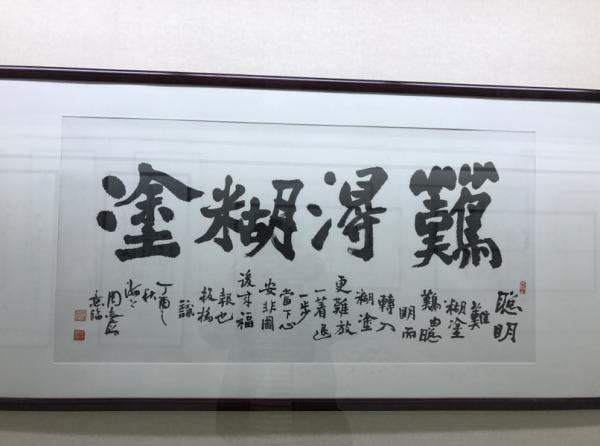 難得糊塗
聰明
難
糊塗
難由聰
明而
轉入
糊塗
更難放
一著退
一步
當下心
安非圖
後來福
報也
板橋
丁酉之
秋
周
意臨